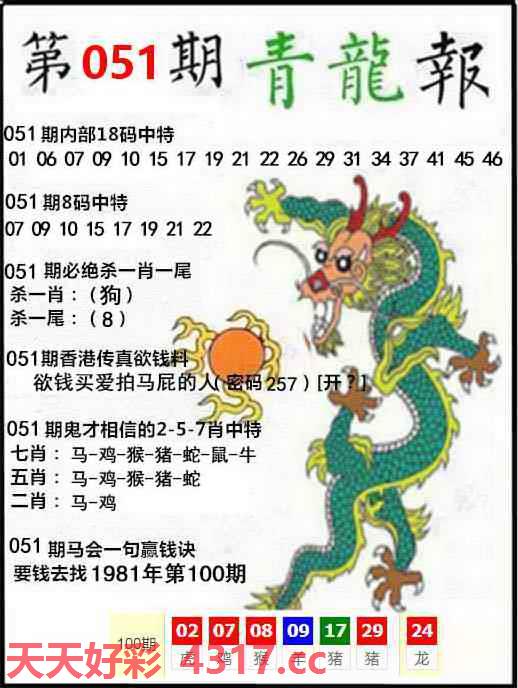 第051期青龍報
051期内部18码中特
01 06 07 09 10 15 17 19 21 22 26 29 31 34 37 41 45 46
051期8码中特
07 09 10 15 17 19 21 22
051期必绝杀一肖一尾
杀一肖：(狗)
杀一尾：(8)
051期香港传真欲钱料
欲钱买爱拍马屁的人(密码257)[开?]
051期鬼才相信的2-5-7肖中特
七肖：马-鸡-猴-猪-蛇-鼠-牛
五肖：马-鸡-猴-猪-蛇
二肖：马-鸡
051期马会一句赢钱诀
要钱去找1981年第100期
100期 02 07 08 09 17 29 24
虎 鸡 猴 羊 猪 猪 龙
天天好彩 4317.cc